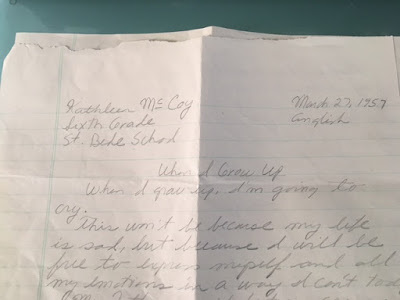 Kathleen McCoy
Sixth Grade
St. Bede School
March 27, 1957
English
When I Grow Up
When I grow up, I'm going to
cry.
This won't be because my life
is sad, but because I will be
free to express myself and all
my emotions in a way I can't